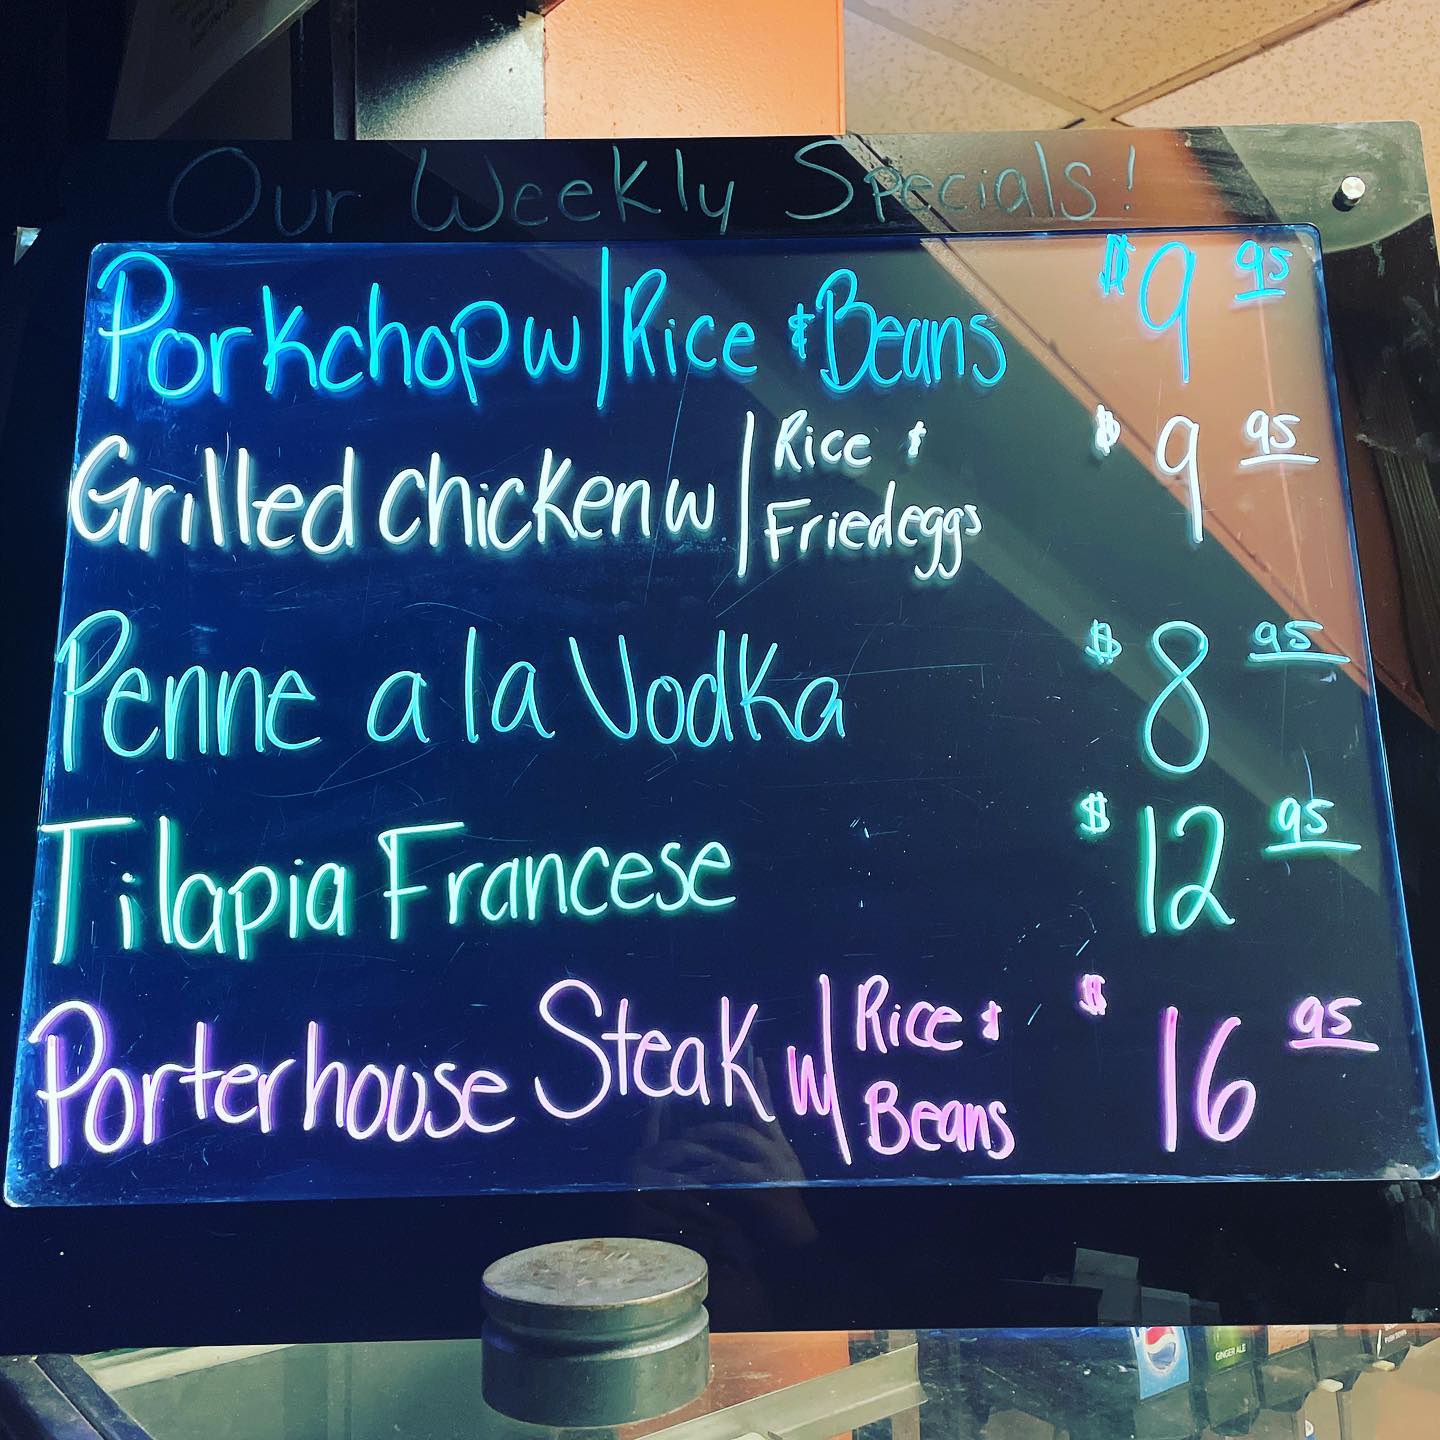 Our Weekly Specials!
Porkchop w/ Rice & Beans $9 95
Grilled chicken w/ Rice & Fried eggs $9 95
Penne a la Vodka $8 95
Tilapia Francese $12 95
Porterhouse Steak w/ Rice & Beans $16 95
GINGER ALE